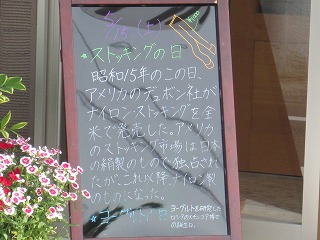 5/15（土）
*ストッキングの日
昭和15年のこの日、
アメリカのデュポン社が
ナイロンストッキングを全
米で発売した。アメリカ
のストッキング市場は日本
の絹製のもので独占され
てたがこれ以降、ナイロン製
のものがになった。
*ヨーグルトの日
ヨーグルトを研究した
ロシアのメチニコフ博士
の誕生日。